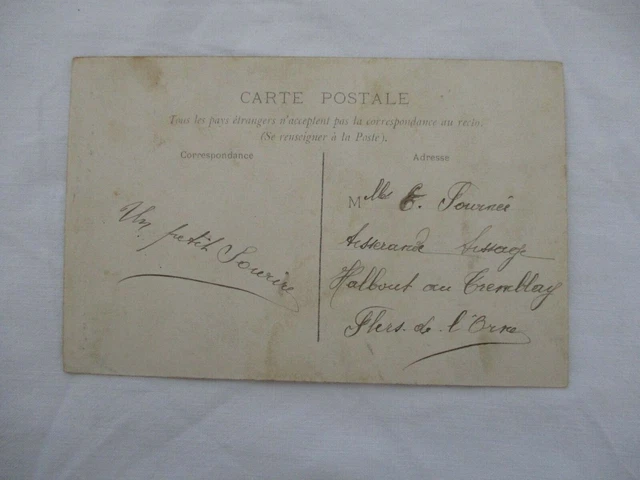 CARTE POSTALE
Tous les pays étrangers n'acceptent pas la correspondance au recto.
(Se renseigner à la Poste).
Correspondance
Adresse
Un petit Sourire
Mlle E. Fournée
tisserande tissage
Halbout au Tremblay
Flers-de-l'Orne